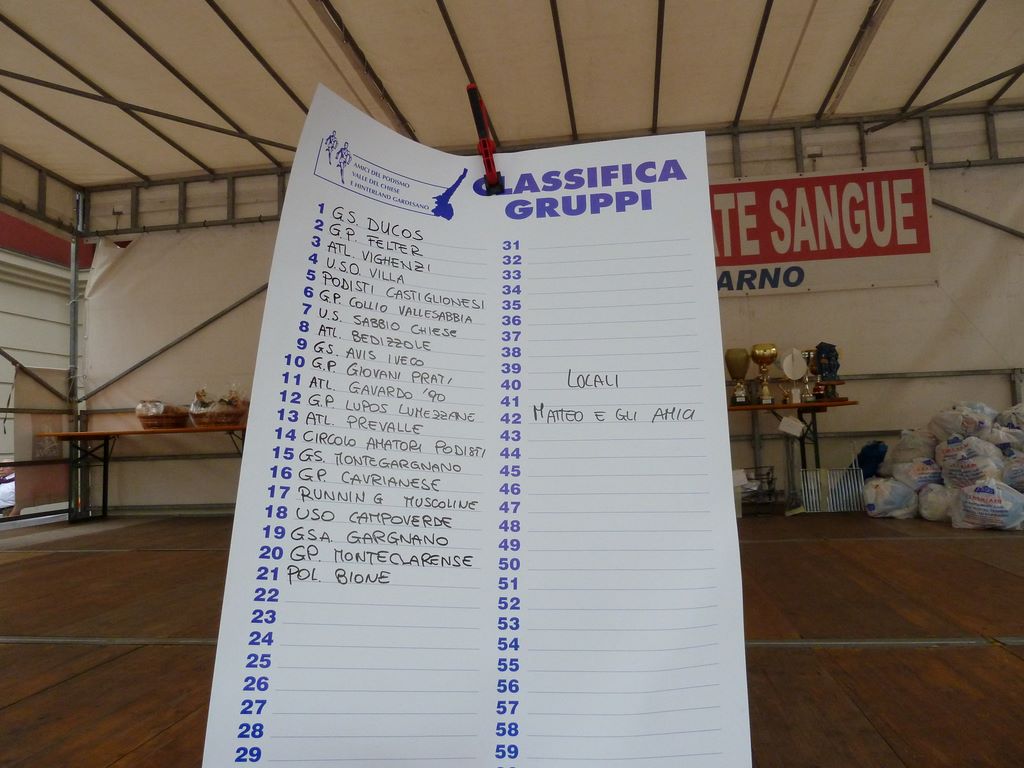 AMICI DEL PODISMO
VALLE DEL CHIESE
E HINTERLAND GARDESANO
CLASSIFICA
GRUPPI
1 G.S. DUCOS
2 G.P. FELTER
3 ATL. VIGHENZI
4 U.S.O. VILLA
5 PODISTI CASTIGLIONESI
6 G.P. COLLIO VALLESABBIA
7 U.S. SABBIO CHIESE
8 ATL. BEDIZZOLE
9 G.S. AVIS IVECO
10 G.P. GIOVANI PRATI
11 ATL. GAVARDO '90
12 G.P. LUPOS LUMEZZANE
13 ATL. PREVALLE
14 CIRCOLO AMATORI PODISTI
15 GS. MONTEGARGNANO
16 G.P. CAVRIANESE
17 RUNNING MUSCOLINE
18 USO CAMPOVERDE
19 GSA. GARGNANO
20 GP. MONTECLARENSE
21 POL. BIONE
22
23
24
25
26
27
28
29
31
32
33
34
35
36
37
38
39
40 LOCALI
41
42 MATTEO E GLI AMICI
43
44
45
46
47
48
49
50
51
52
53
54
55
56
57
58
59
TE SANGUE
ARNO